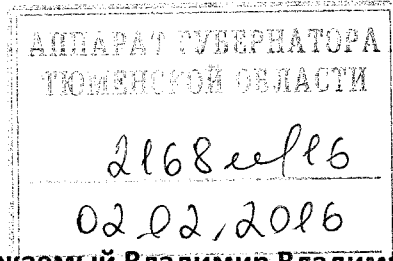 АППАРАТ ГУБЕРНАТОРА
ТЮМЕНСКОЙ ОБЛАСТИ
2168-м/16
02.02.2016
Владимир